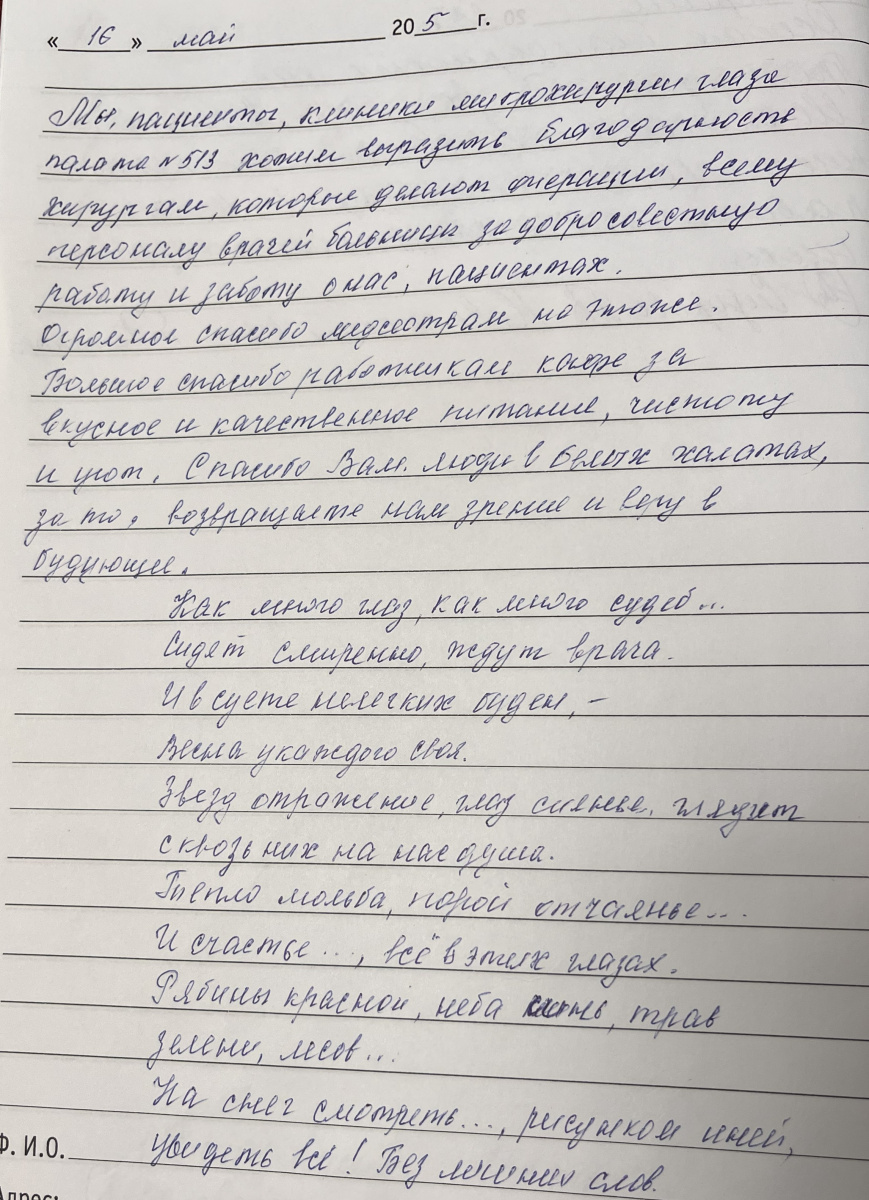 « 16 » май 20 5 г.
Мы, пациенты, клиники микрохирургии глаза
палата №513 хотим выразить благодарность
хирургам, которые делают операции, всему
персоналу врачей больницы за добросовестную
работу и заботу о нас, пациентах.
Огромное спасибо медсестрам на этаже.
Большое спасибо работникам кафе за
вкусное и качественное питание, чистоту
и уют. Спасибо Вам люди в белых халатах,
за то, возвращаете нам зрение и веру в
будующее.
Как много глаз, как много судеб...
Сидят смиренно, ждут врача.
И в суете нелегких буден, –
Весна у каждого своя.
Звезд отражение, глаз сиянье, глядит
сквозь них на нас душа.
Тепло мольба, порой отчаянье...
И счастье..., всё в этих глазах.
Рябины красной, неба синь, трав
зелени, лесов...
На снег смотреть..., рисунком иней,
Ф. И.О. увидеть всё! Без лишних слов.
Адрес: